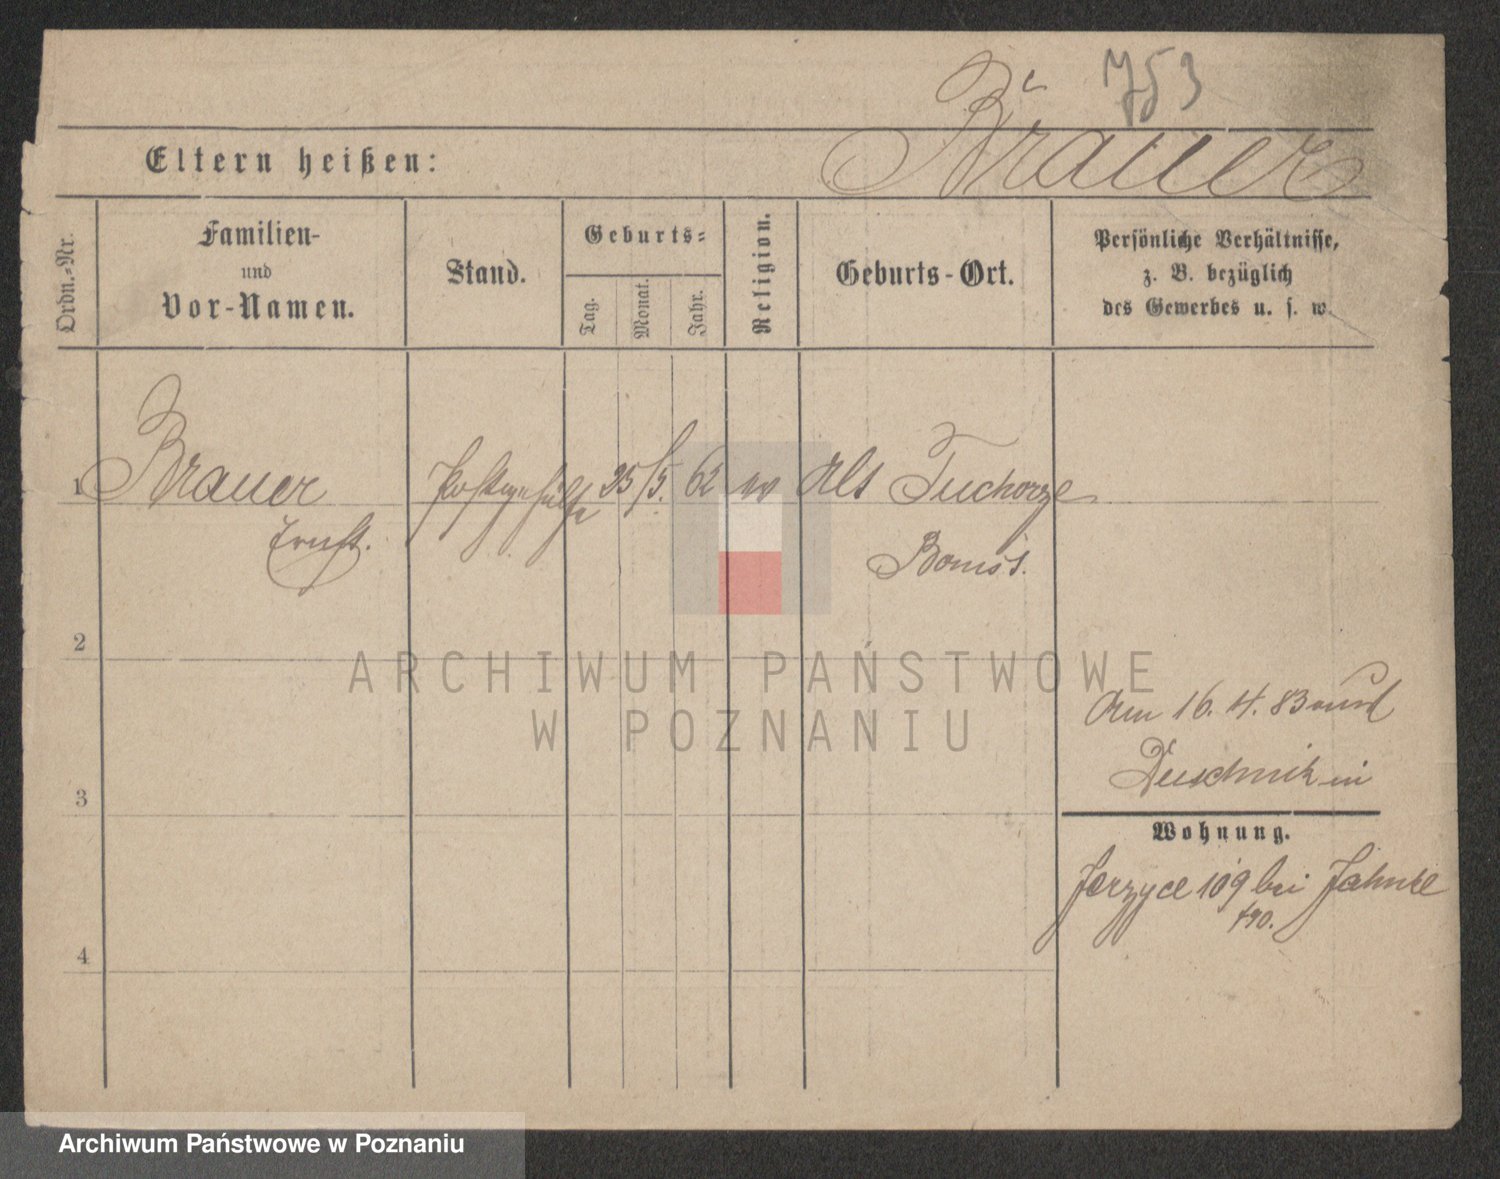 753
Brauer
Eltern heißen:
Ordn.-Nr.
Familien-
und
Vor-Namen.
Stand.
Geburts-
Tag.
Monat.
Jahr.
Religion.
Geburts-Ort.
Persönliche Verhältnisse,
z. B. bezüglich
des Gewerbes u. s. w.
1 Brauer Postgehülfe 25/5. 62 ev Alt Tuchorze
Ernst. Bomst.
2
ARCHIWUM PAŃSTWOWE
W POZNANIU
Am 16. 4. 83 und
Duschnik in
3
Wohnung.
Jerzyce 109 bei Jahnke
4
Archiwum Państwowe w Poznaniu